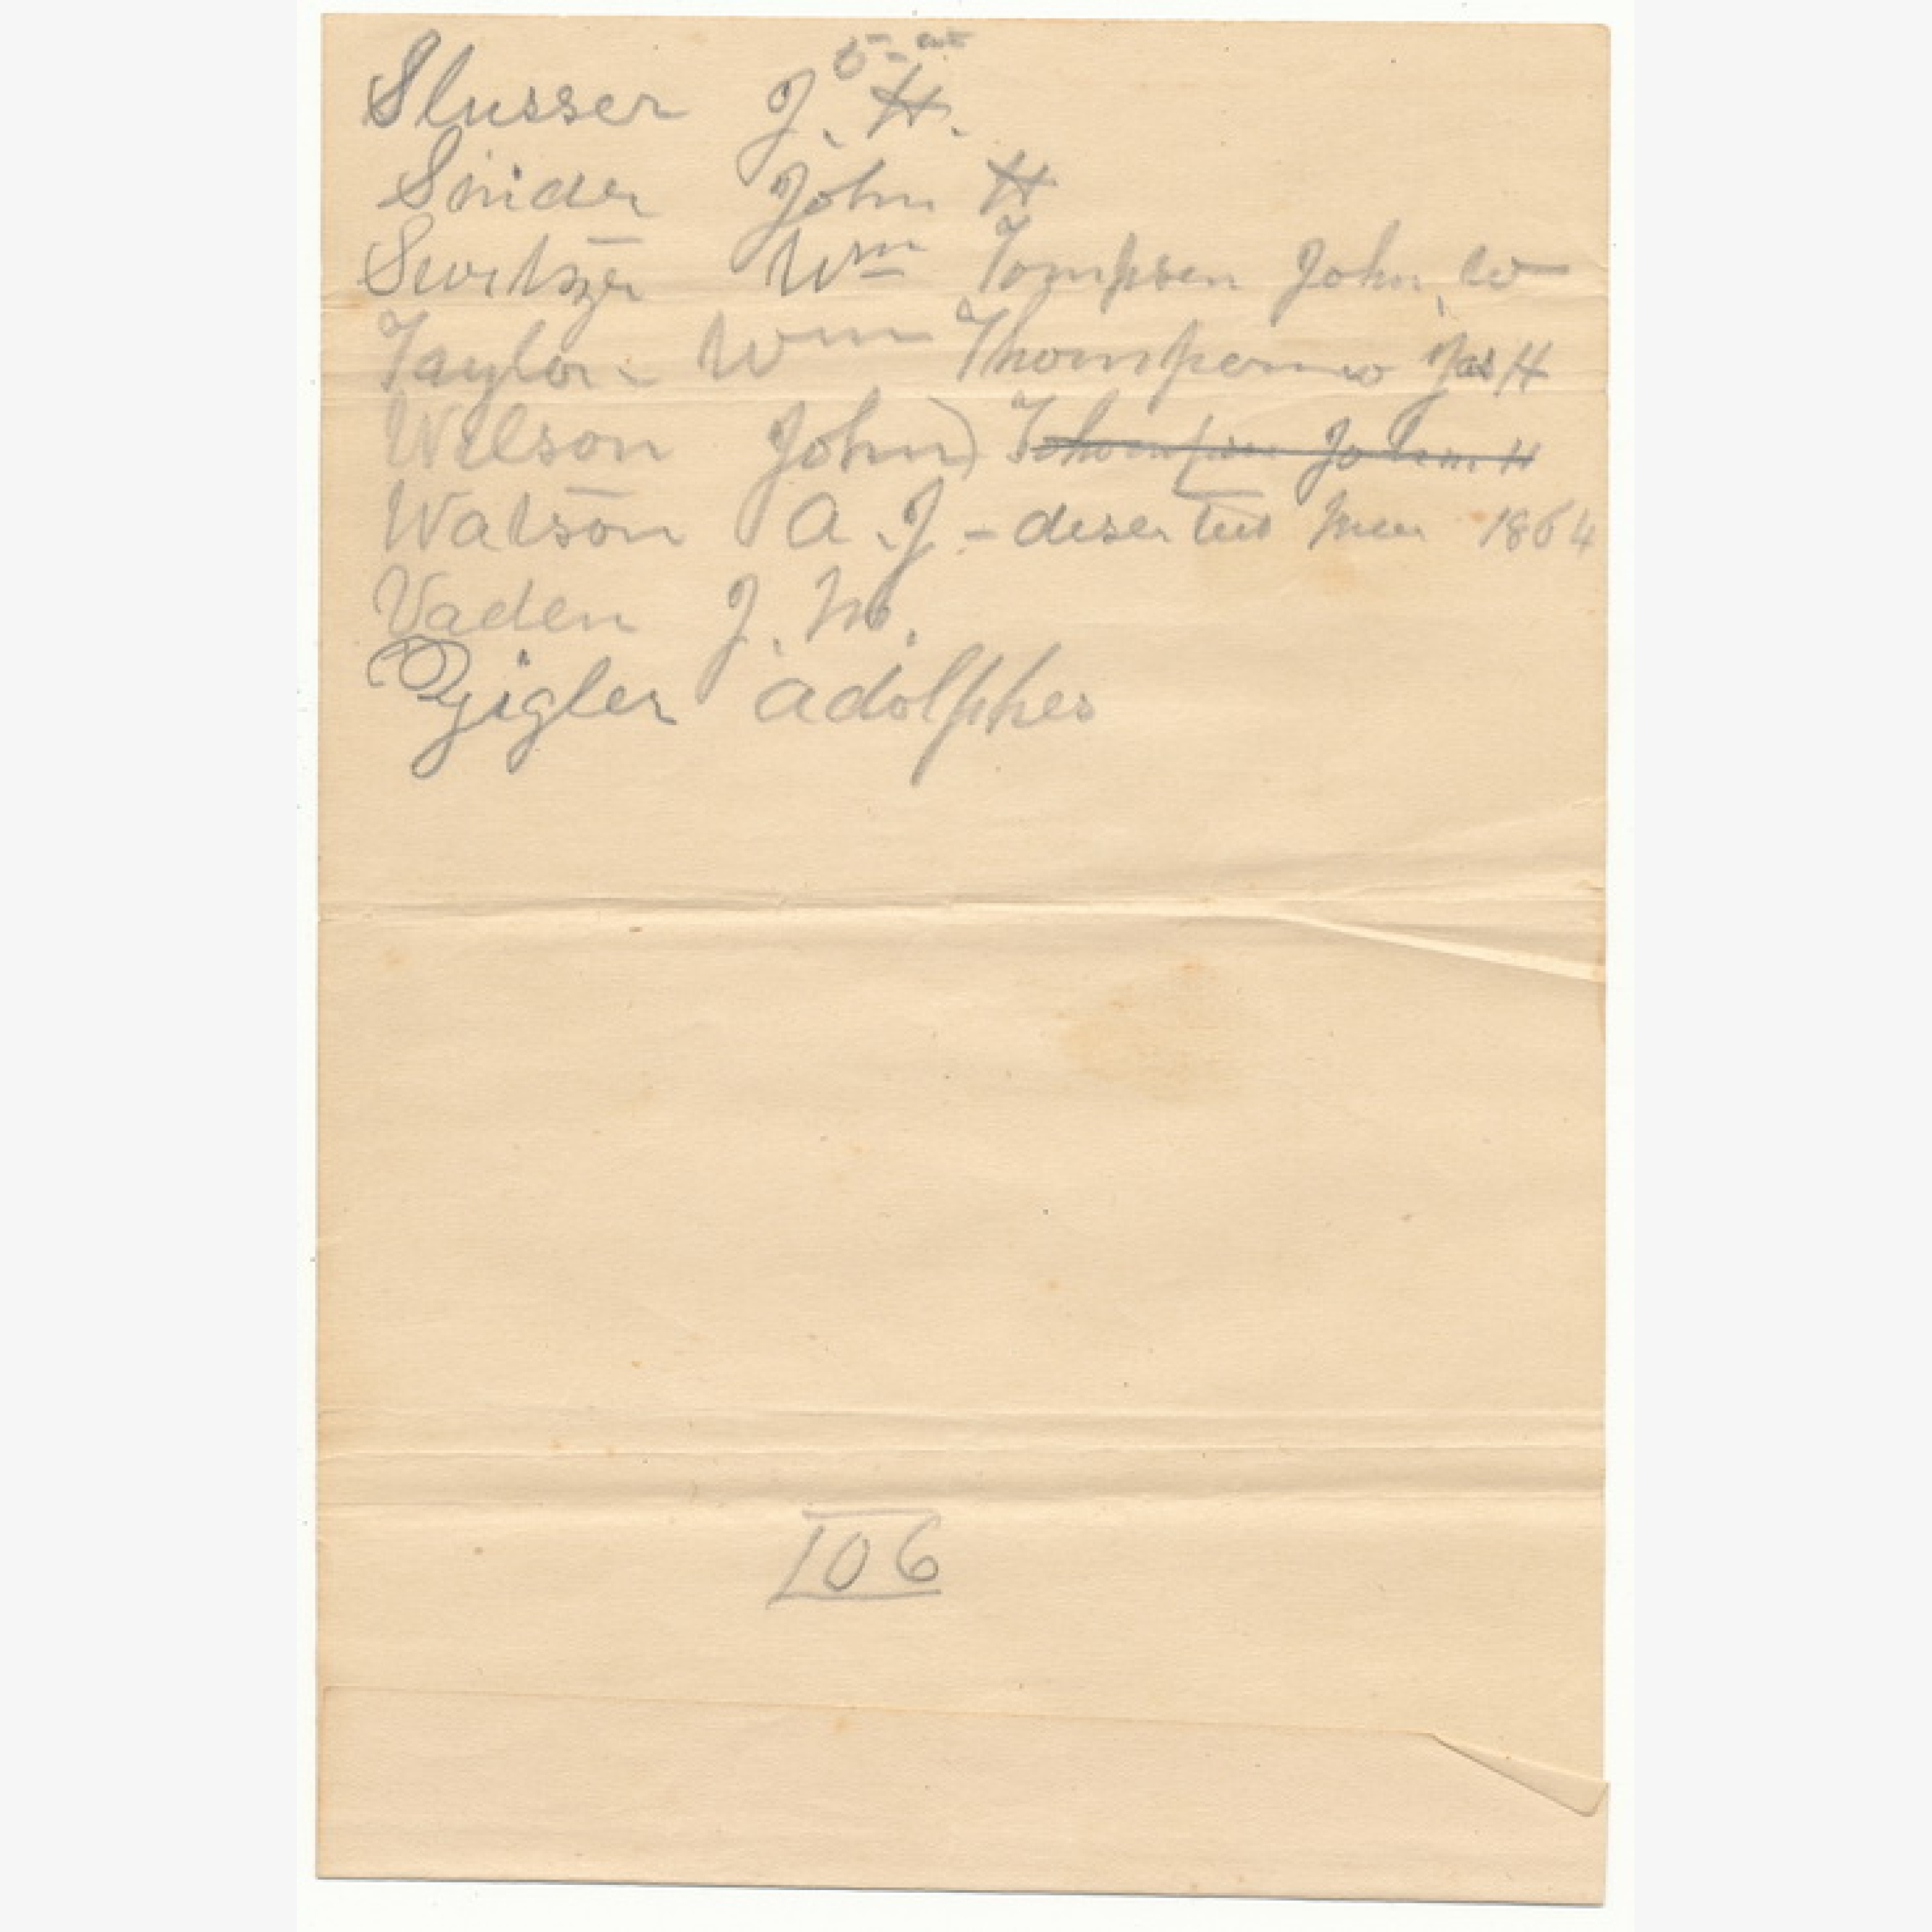 Slusser J. H.
Snider John H
Switzer Wm Tompson John W
Taylor Wm Thompson Jas H
Wilson John) Thompson John H
Watson A. J - deserted 1864
Vaden J. M.
Zigler Adolphes
106